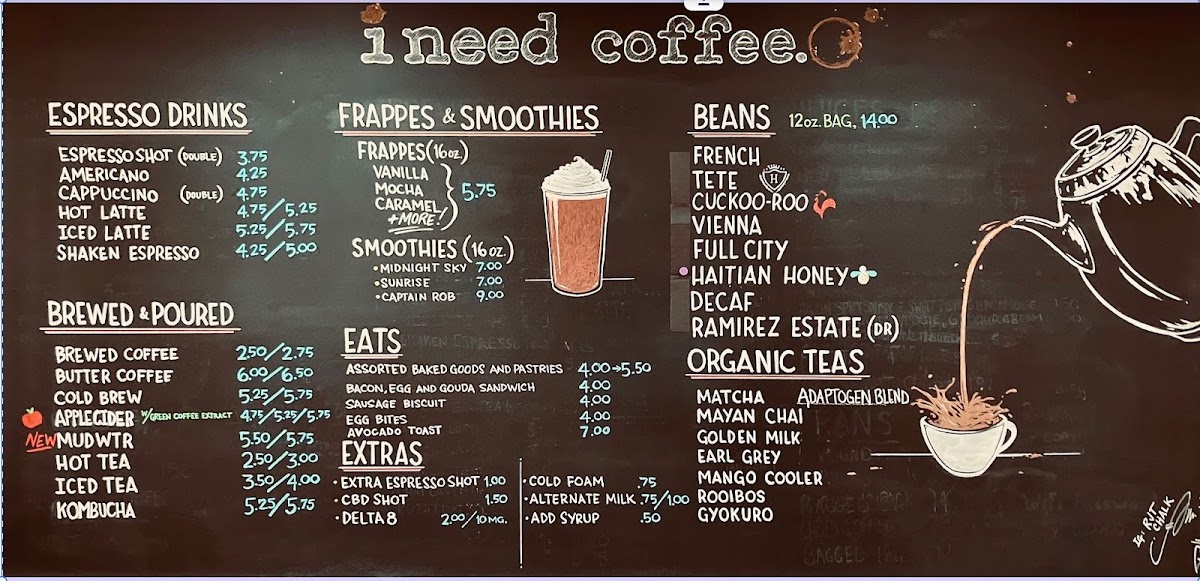 i need coffee.
ESPRESSO DRINKS
ESPRESSO SHOT (DOUBLE) 3.75
AMERICANO 4.25
CAPPUCCINO (DOUBLE) 4.75
HOT LATTE 4.75/5.25
ICED LATTE 5.25/5.75
SHAKEN ESPRESSO 4.25/5.00
BREWED & POURED
BREWED COFFEE 2.50/2.75
BUTTER COFFEE 6.00/6.50
COLD BREW 5.25/5.75
APPLECIDER W/GREEN COFFEE EXTRACT 4.75/5.25/5.75
NEW MUDWTR 5.50/5.75
HOT TEA 2.50/3.00
ICED TEA 3.50/4.00
KOMBUCHA 5.25/5.75
FRAPPES & SMOOTHIES
FRAPPES (16oz.)
VANILLA
MOCHA 5.75
CARAMEL
+MORE!
SMOOTHIES (16oz.)
•MIDNIGHT SKY 7.00
•SUNRISE 7.00
•CAPTAIN ROB 9.00
EATS
ASSORTED BAKED GOODS AND PASTRIES 4.00→5.50
BACON, EGG AND GOUDA SANDWICH 4.00
SAUSAGE BISCUIT 4.00
EGG BITES 4.00
AVOCADO TOAST 7.00
EXTRAS
•EXTRA ESPRESSO SHOT 1.00
•CBD SHOT 1.50
•DELTA 8 2.00/10MG.
•COLD FOAM .75
•ALTERNATE MILK .75/1.00
•ADD SYRUP .50
BEANS 12oz. BAG, 14.00
FRENCH
TETE H
CUCKOO-ROO
VIENNA
FULL CITY
HAITIAN HONEY
DECAF
RAMIREZ ESTATE (DR)
ORGANIC TEAS
MATCHA ADAPTOGEN BLEND
MAYAN CHAI
GOLDEN MILK
EARL GREY
MANGO COOLER
ROOIBOS
GYOKURO
CHALK